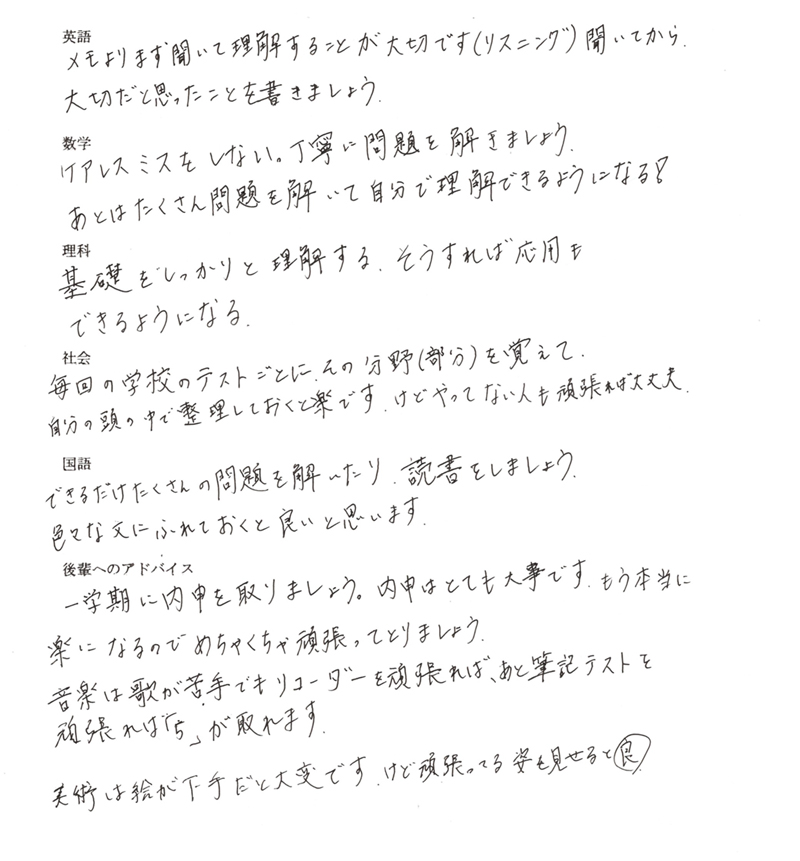 英語
メモよりまず聞いて理解することが大切です(リスニング)聞いてから、
大切だと思ったことを書きましょう。
数学
ケアレスミスをしない。丁寧に問題を解きましょう。
あとはたくさん問題を解いて自分で理解できるようになる!
理科
基礎をしっかりと理解する、そうすれば応用も
できるようになる。
社会
毎回の学校のテストごとに、その分野(部分)を覚えて、
自分の頭の中で整理しておくと楽です。けどやってない人も頑張れば大丈夫。
国語
できるだけたくさんの問題を解いたり、読書をしましょう。
色々な文にふれておくと良いと思います。
後輩へのアドバイス
一学期に内申を取りましょう。内申はとても大事です。もう本当に
楽になるのでめちゃくちゃ頑張ってとりましょう。
音楽は歌が苦手でもリコーダーを頑張れば、あと筆記テストを
頑張れば「5」が取れます。
美術は絵が下手だと大変です。けど頑張ってる姿を見せると良